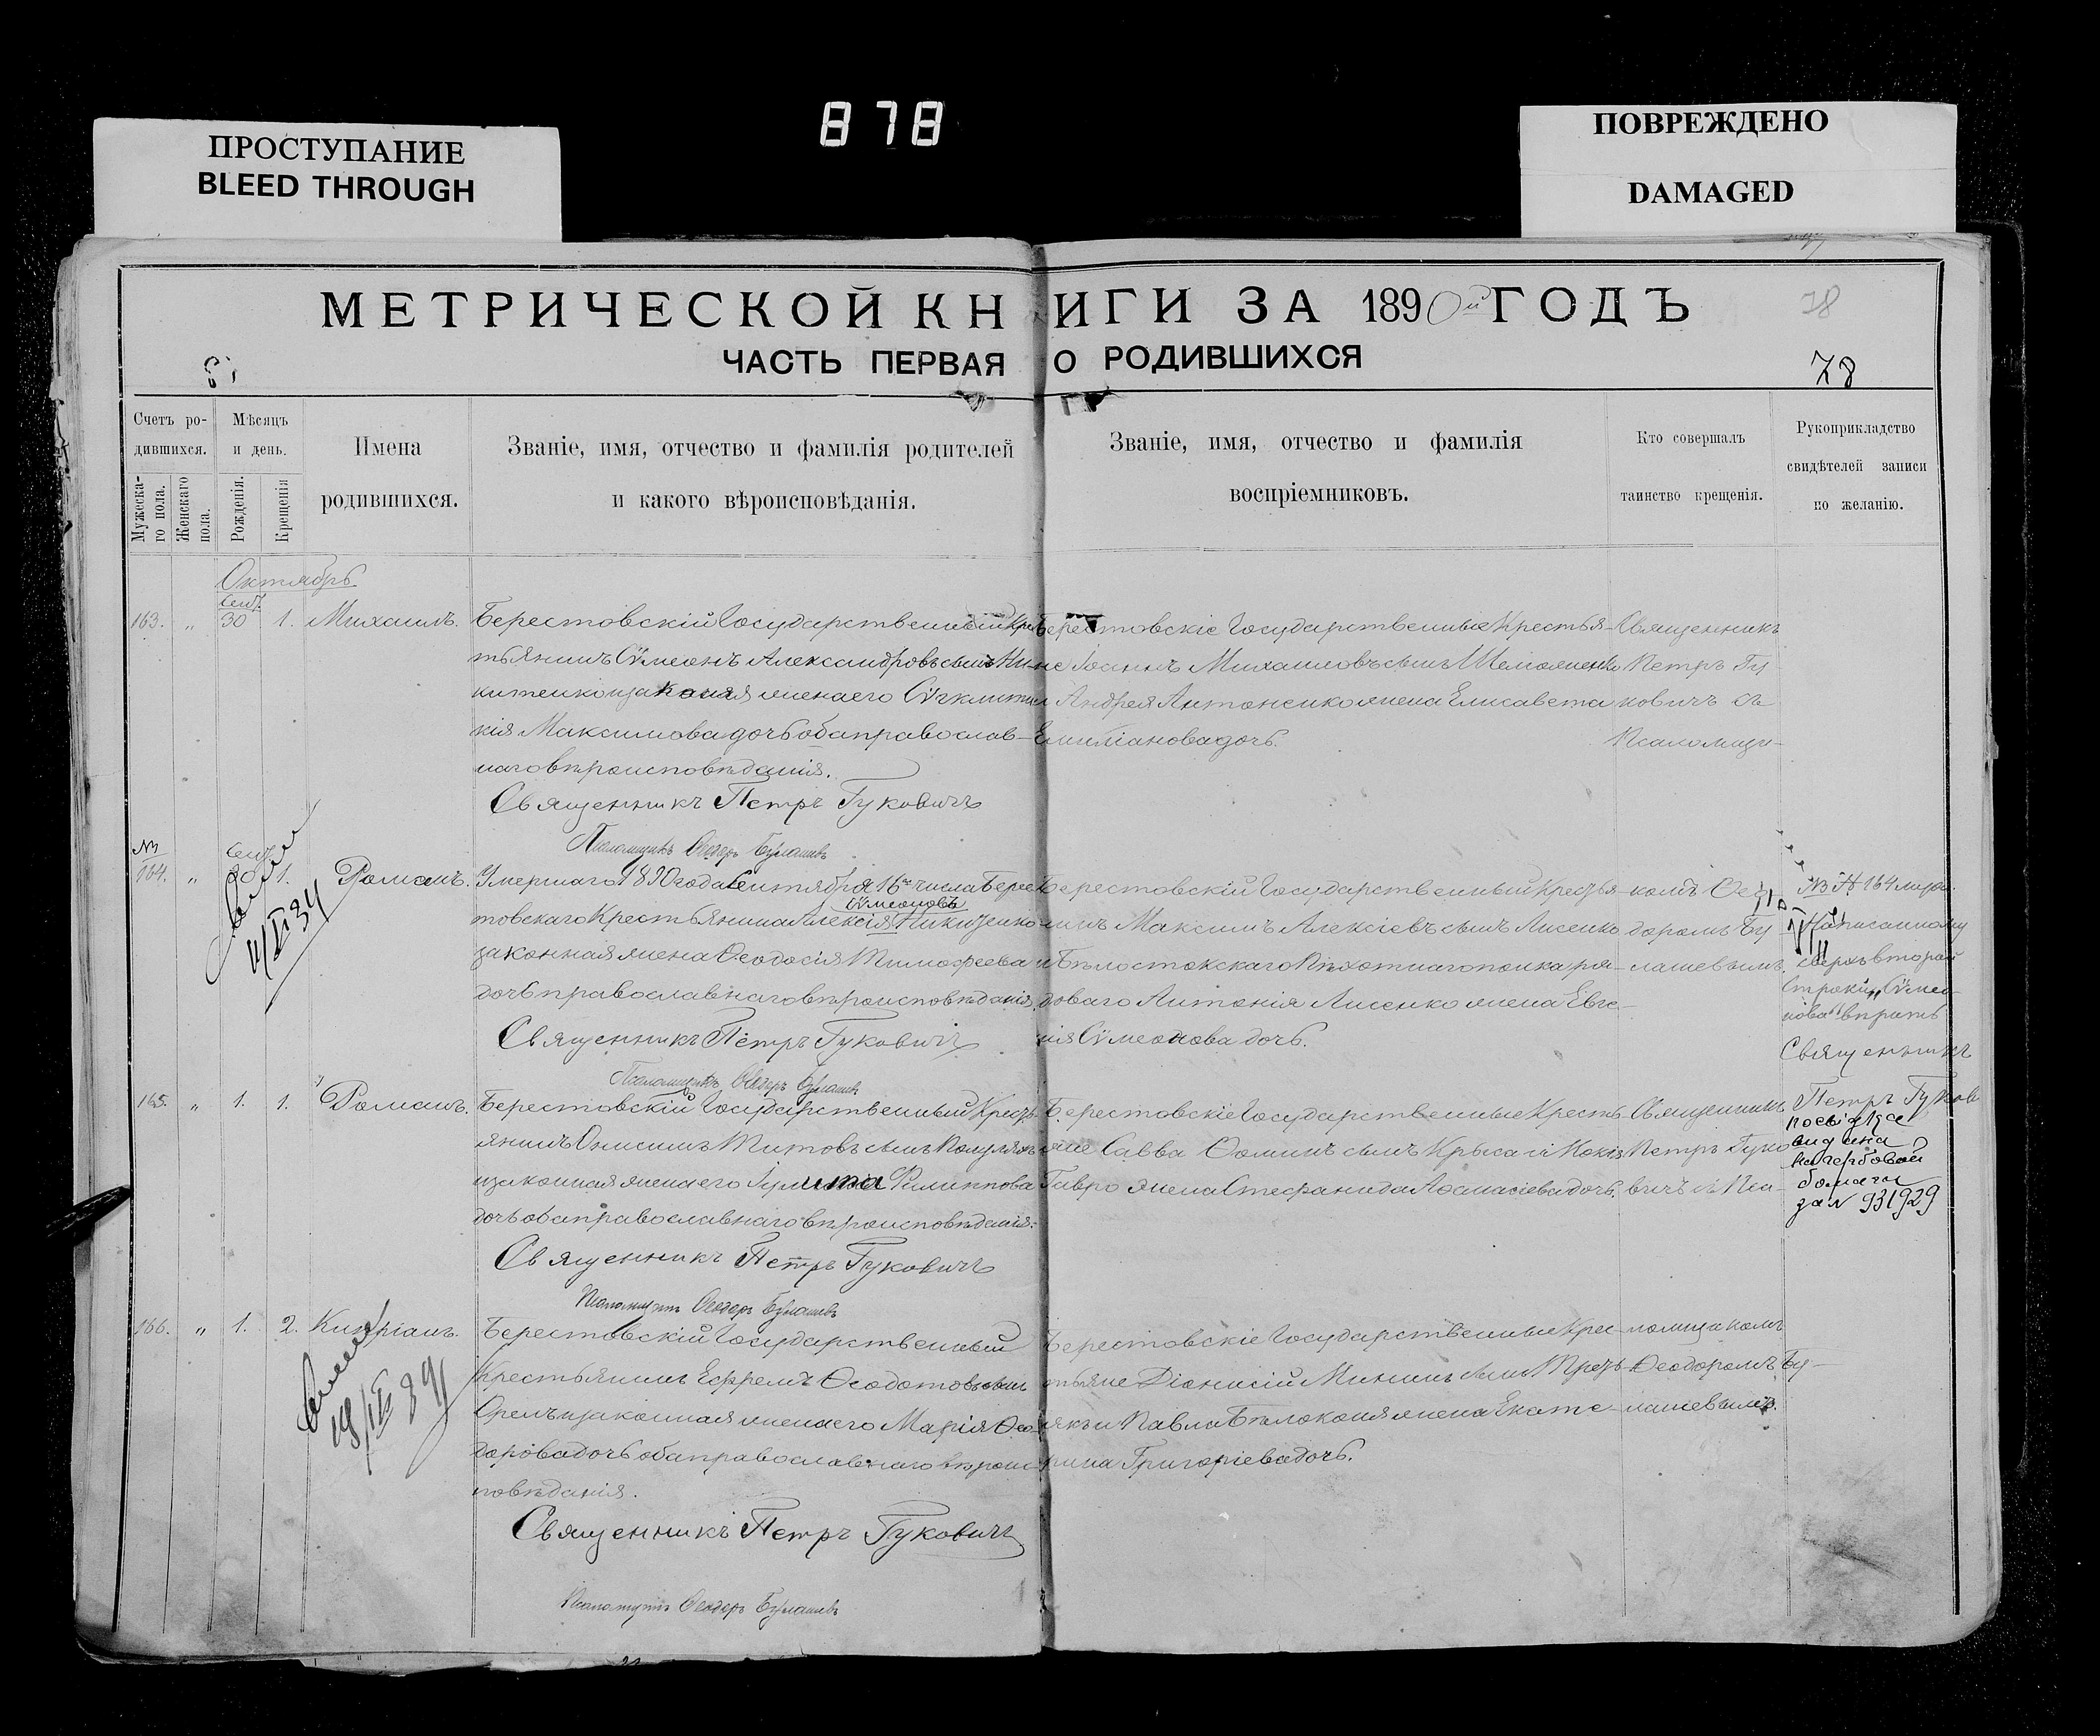 878
ПРОСТУПАНИЕ
BLEED THROUGH
ПОВРЕЖДЕНО
DAMAGED
МЕТРИЧЕСКОЙ КНИГИ ЗА 1890й ГОДЪ
78
ЧАСТЬ ПЕРВАЯ О РОДИВШИХСЯ
78
Счетъ ро-
дившихся.
Мужеска-
го пола.
Женскаго
пола.
Мѣсяцъ
и день.
Рожденія.
Крещенія
Имена
родившихся.
Званіе, имя, отчество и фамилія родителей
и какого вѣроисповѣданія.
Званіе, имя, отчество и фамилія
воспріемниковъ.
Кто совершалъ
таинство крещенія.
Рукоприкладство
свидѣтелей записи
по желанію.
Октябрь
Сент.
163. „ 30 1. Михаилъ.
Берестовскій Государственный Кре
тьянинъ Сѵмеонъ Александровъ сынъ Ни-
китенко и законная жена его Сѵнклити
кія Максимова дочь оба православ-
наго вѣроисповѣданія.
Священникъ Петръ Гуковичъ
Псаломщикъ Ѳеодоръ Булашевъ
Берестовскіе Государственные Крестья-
не Іоаннъ Михаиловъ сынъ
и Андрея Антоненко жена Елисавета
Емиліанова дочь.
Священникъ
Петръ Гу-
ковичъ съ
Псаломщи-
№
Сент
164. „ 30 1. Романъ.
4/VI 34
Умершаго 1890 года Сентября 16го числа Берес
товскаго Крестьянина Алексія Сѵмеонова Никитенко
законная жена Ѳеодосія Тимофеева
дочь православнаго вѣроисповѣданія.
Священникъ Петръ Гуковичъ
Псаломщикъ Ѳеодоръ Булашевъ
Берестовскій Государственный Крестья-
нинъ Максимъ Алексіевъ сынъ Лисенко
и Бѣлостокскаго Пѣхотнаго полка ря-
доваго Антонія Лисенко жена Евге-
нія Сѵмеонова дочь.
комъ Ѳео
доромъ Бу-
лашевымъ.
№ 164
Написанному
сверхъ второй
строки „Сѵмео-
нова" вѣрить
Священникъ
Петръ Гуков
165. „ 1. 1. Романъ.
Берестовскій Государственный Крест
янинъ Онисимъ Титовъ сынъ
и законная жена его Филиппова
дочь оба православнаго вѣроисповѣданія.
Священникъ Петръ Гуковичъ
Псаломщикъ Ѳеодоръ Булашевъ
Берестовскіе Государственные Кресть
яне Савва Ѳоминъ сынъ Крыса и
Гавро жена Стефанида Аѳанасіева дочь.
Священникъ
Петръ Гуко
вичъ съ Пса-
видана
на гербовой
бомаги
за № 931929
166. „ 1. 2. Кипріанъ.
Берестовскій Государственный
Крестьянинъ Ефремъ Ѳеодотовъ сынъ
и законная жена его Марія Ѳео
дорова дочь оба православнаго вѣроис
повѣданія.
Священникъ Петръ Гуковичъ
Псаломщикъ Ѳеодоръ Булашевъ
Берестовскіе Государственные Крес-
тьяне Діонисій Мининъ сынъ
и Павла Бѣлоконя жена Екате-
рина Григоріева дочь.
ломщикомъ
Ѳеодоромъ Бу-
лашевымъ.